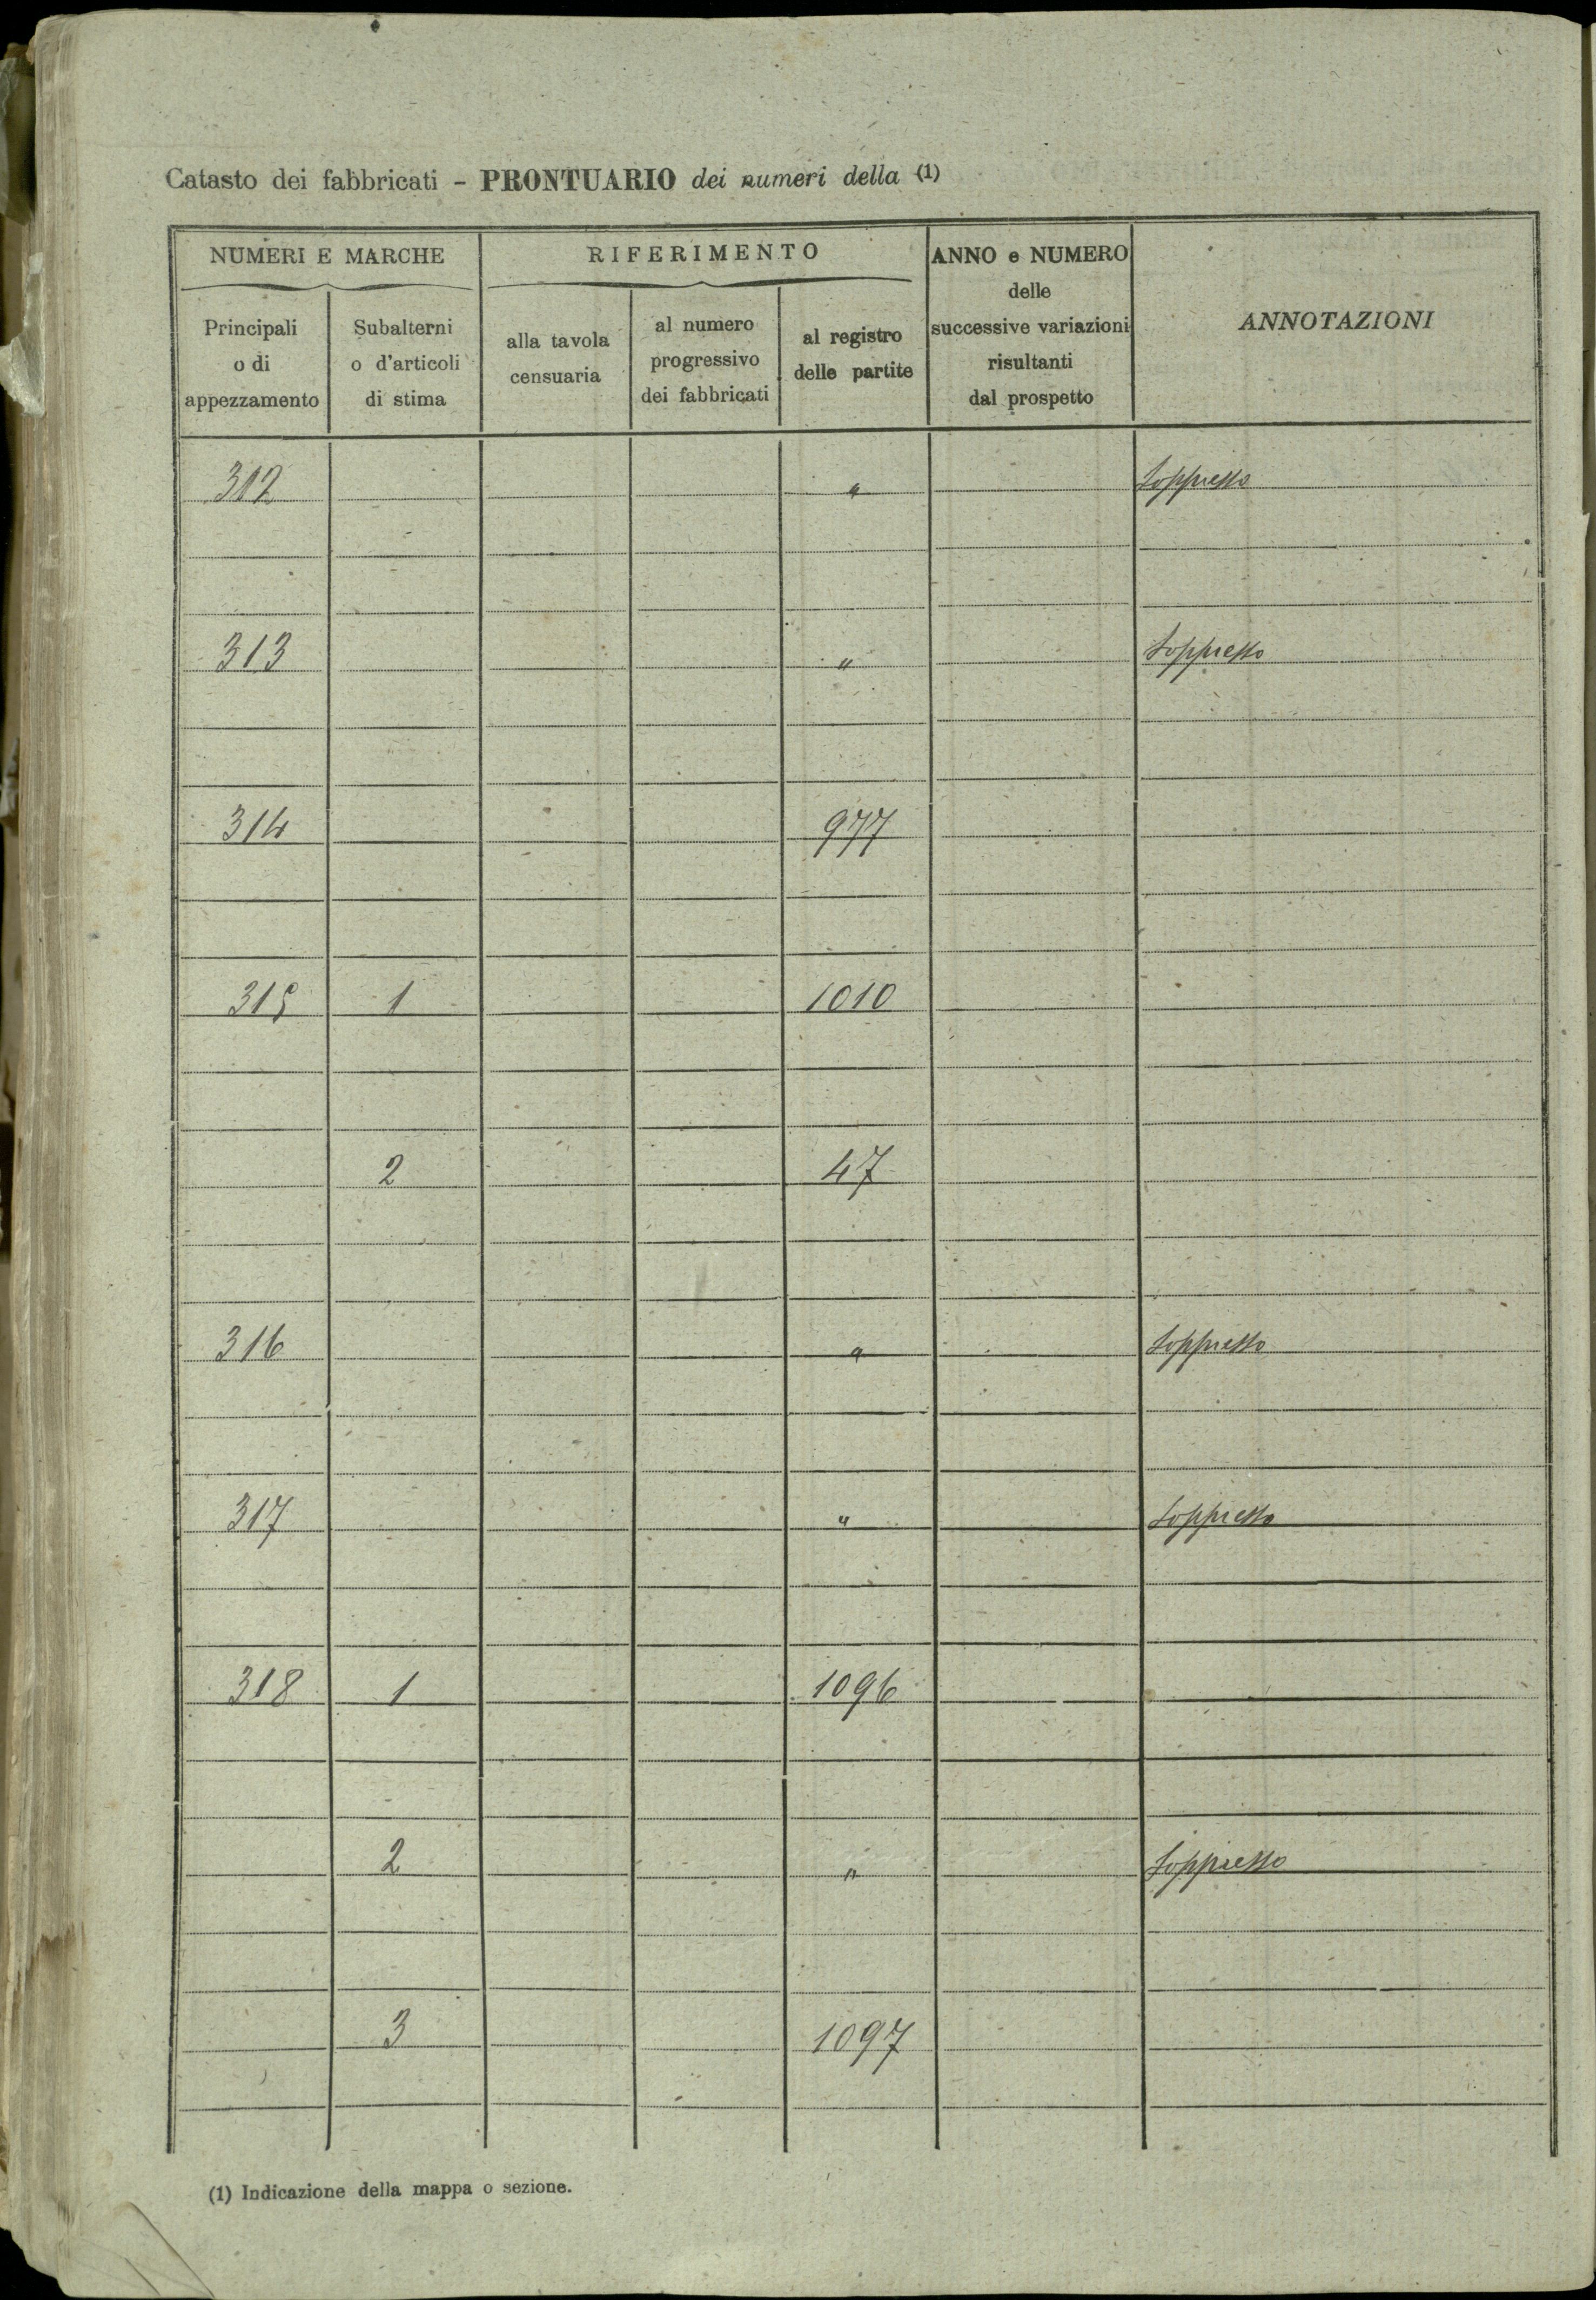 Catasto dei fabbricati - PRONTUARIO dei numeri della (1)
NUMERI E MARCHE
RIFERIMENTO
ANNO e NUMERO
delle
successive variazioni
risultanti
dal prospetto
ANNOTAZIONI
Principali
o di
appezzamento
Subalterni
o d'articoli
di stima
alla tavola
censuaria
al numero
progressivo
dei fabbricati
al registro
delle partite
312 " Soppresso
313 " Soppresso
314 977
315 1 1010
2 47
316 " Soppresso
317 " Soppresso
318 1 1096
2 " Soppresso
3 1097
(1) Indicazione della mappa o sezione.